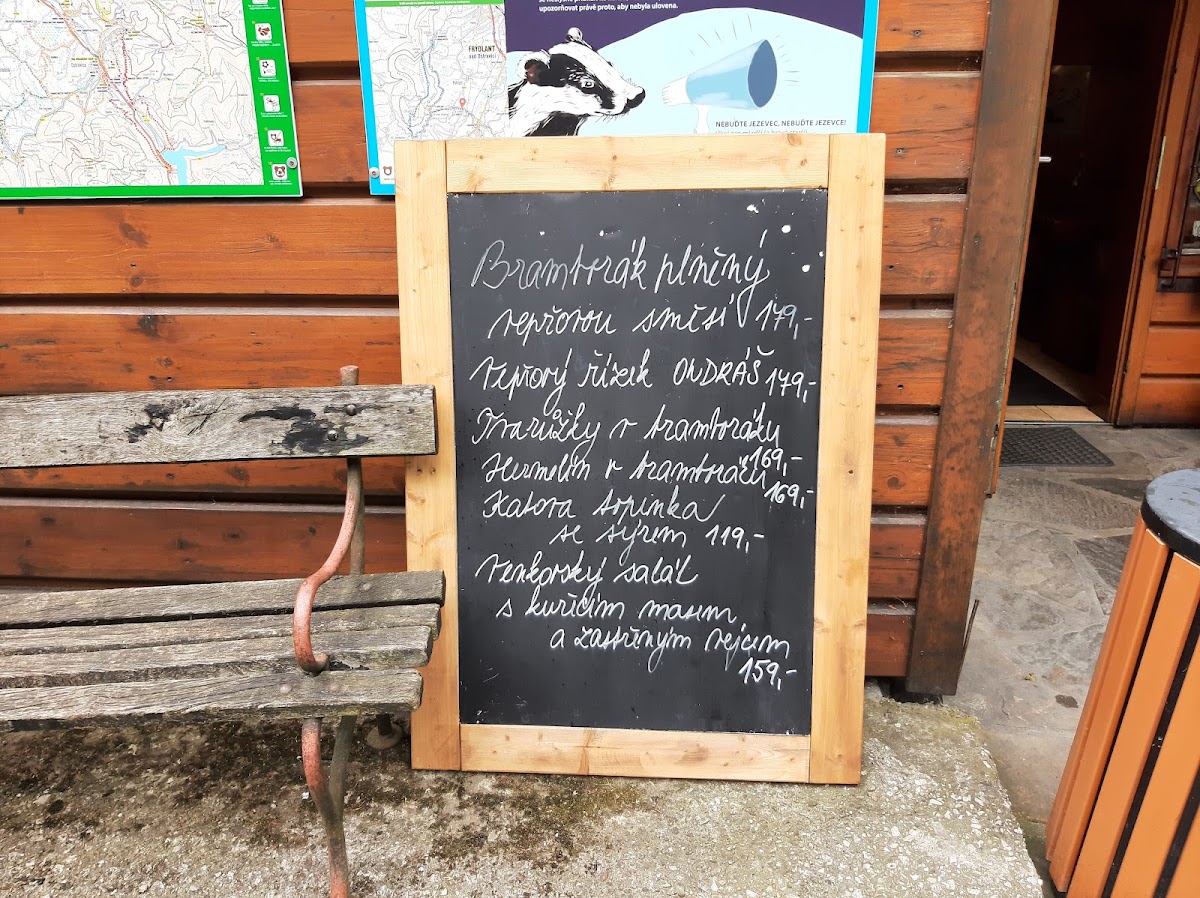 upozorňovat právě proto, aby nebyla ulovena.
FRÝDLANT
nad Ostravicí
NEBUĎTE JEZEVEC, NEBUĎTE JEZEVCE!
Bramborák plněný
vepřovou směsí 179,-
Vepřový řízek ONDRÁŠ 179,-
Tvarůžky v bramboráku
169,-
Hermelín v bramboráku
169,-
Katova topinka
se sýrem 119,-
Venkovský salát
s kuřecím masem
a zastřeným vejcem
159,-